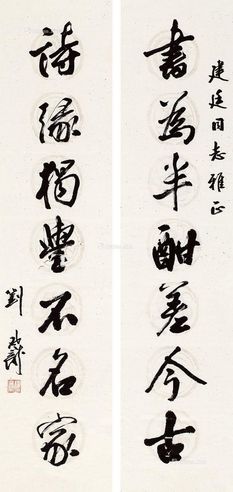 建廷同志雅正
書為半酣差今古
詩緣獨豐不名家
劉